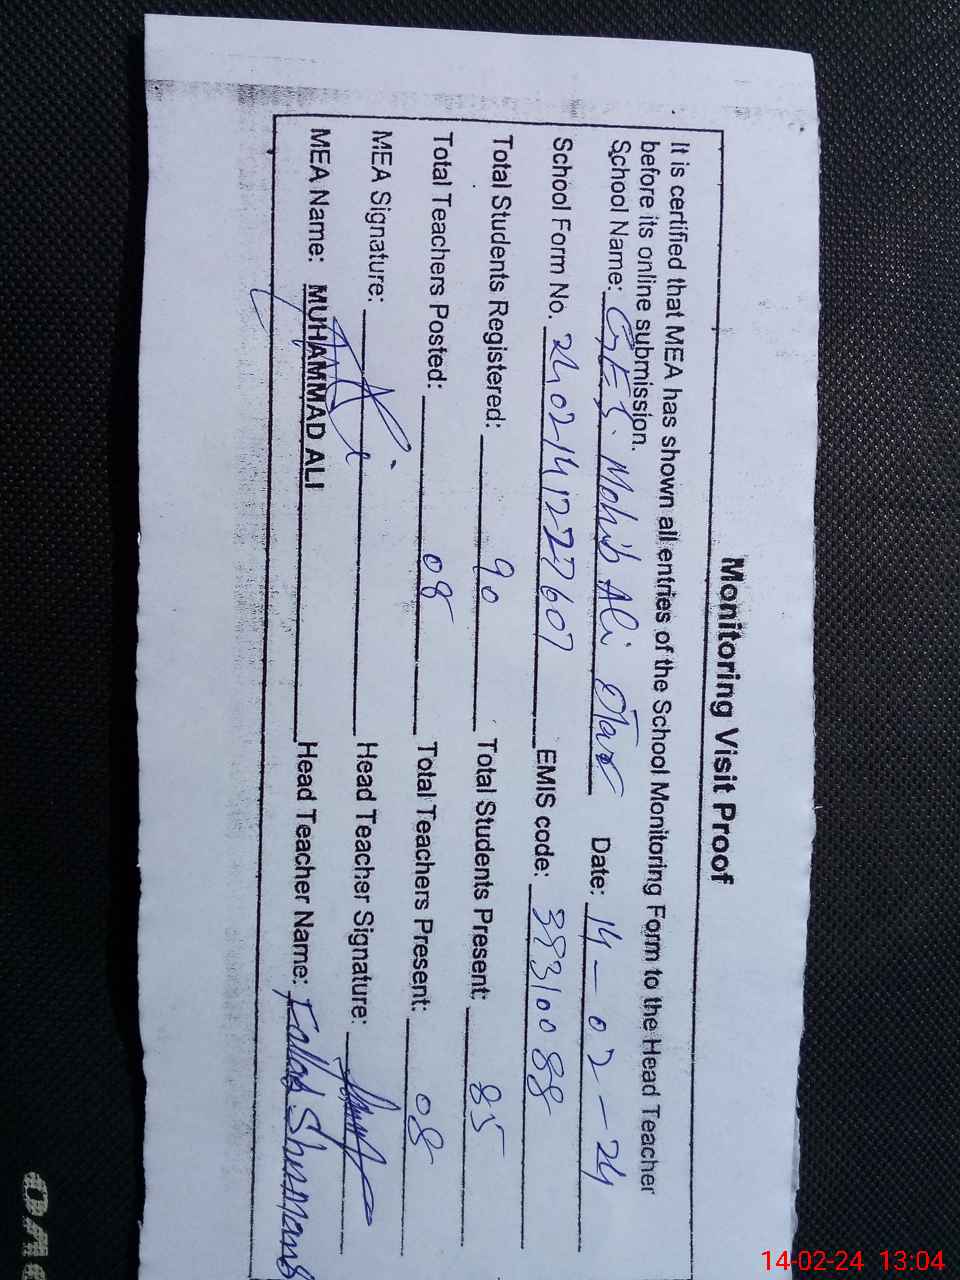 Monitoring Visit Proof
It is certified that MEA has shown all entries of the School Monitoring Form to the Head Teacher
before its online submission.
School Name: Mohib Ali Date: 14-02-24
School Form No. 2402141227607 EMIS code:
Total Students Registered: 90 Total Students Present: 85
Total Teachers Posted: 08 Total Teachers Present: 08
MEA Signature: Head Teacher Signature:
MEA Name: MUHAMMAD ALI Head Teacher Name:
14-02-24 13:04